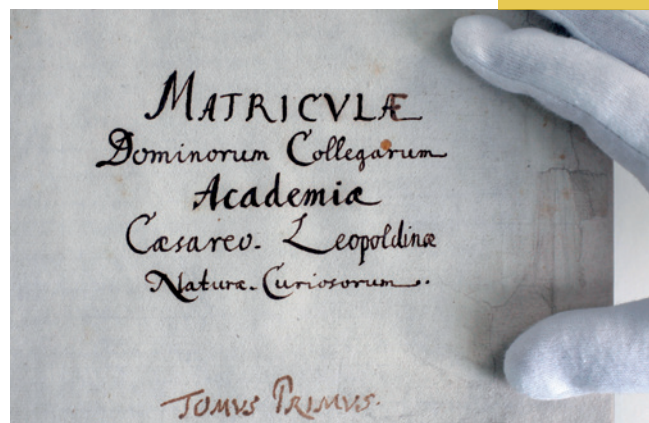 MATRICVLÆ
Dominorum Collegarum
Academiæ
Cæsareo-Leopoldinæ
Naturæ-Curiosorum.
TOMVS PRIMVS.